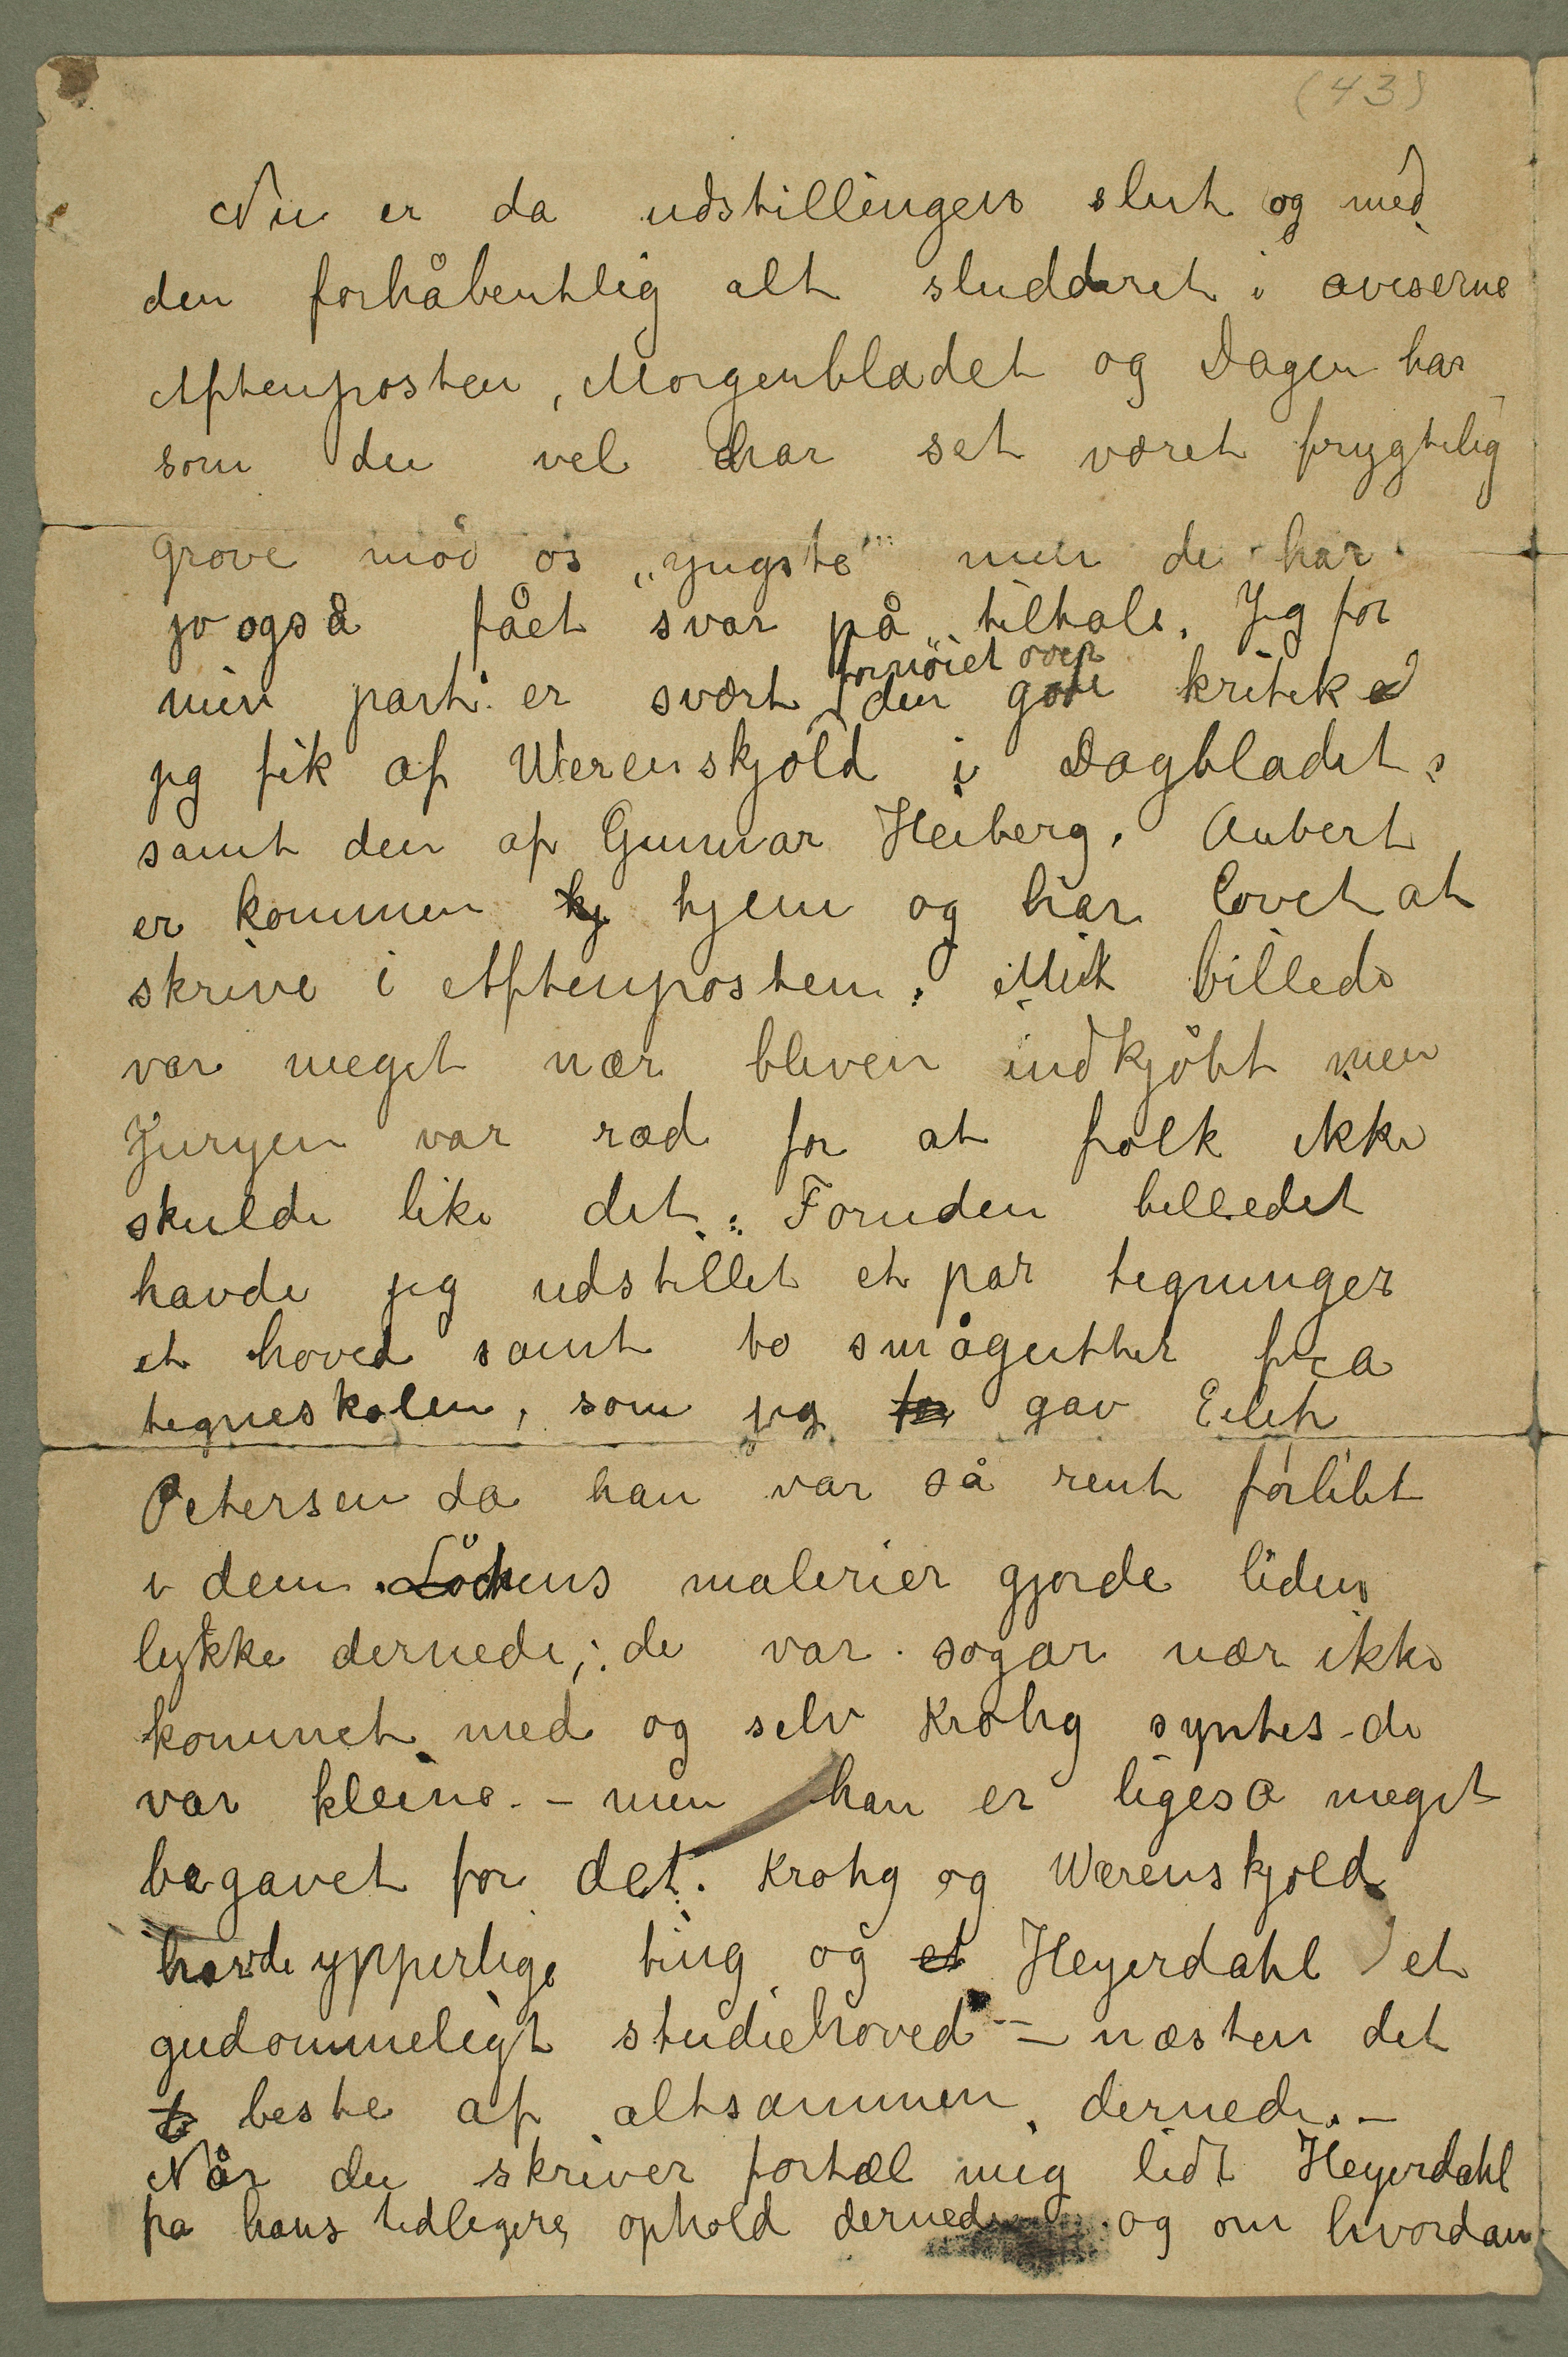 (43)
Nu er da udstillingen slut og med
den forhåbentlig alt sludderet i aviserne
Aftenposten, Morgenbladet og Dagen har
som du vel har set været frygtelig
grove mod os „yngste" men de har
jo også fået svar på tiltale. Jeg for
min part er svært fornöiet over den gode kritik
jeg fik af Werenskjold i Dagbladet,
samt den af Gunnar Heiberg. Aubert
er kommen hj hjem og har lovet at
skrive i Aftenposten. Mit billede
var meget nær bleven indkjöbt men
Juryen var ræd for at folk ikke
skulde like det. Foruden billedet
havde jeg udstillet et par tegninger
et hoved samt to smågutter fra
tegneskolen, som jeg gav Eilif
Petersen da han var så rent forlibt
i dem. Löchens malerier gjorde liden
lykke dernede; de var sogar nær ikke
kommet med og selv Krohg syntes de
var kleine. – men han er ligeså meget
begavet for det. Krohg og Werenskjold
havde ypperlige ting og et Heyerdahl et
gudommeligt studiehoved – næsten det
beste af altsammen dernede. –
Når du skriver fortæl mig lidt Heyerdahl
fra hans tidligere ophold dernede og om hvordan